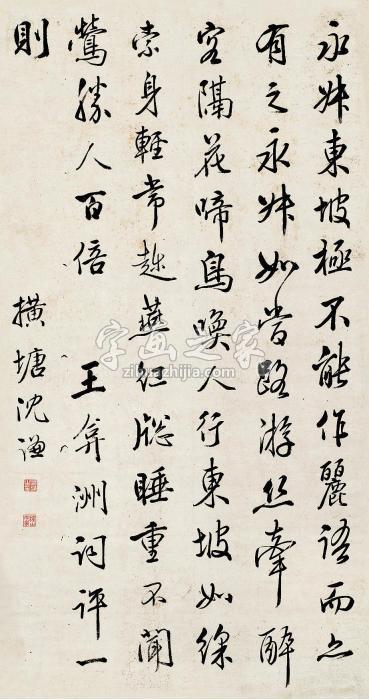 永叔東坡極不能作麗語而亦
有之永叔如當路游絲牽醉
客隔花啼鳥喚人行東坡如綵
索身輕常趂燕紅牕睡重不聞
鶯勝人百倍 王弇洲詞評一
則
橫塘沈謙
字画之家
zihuazhijia.com